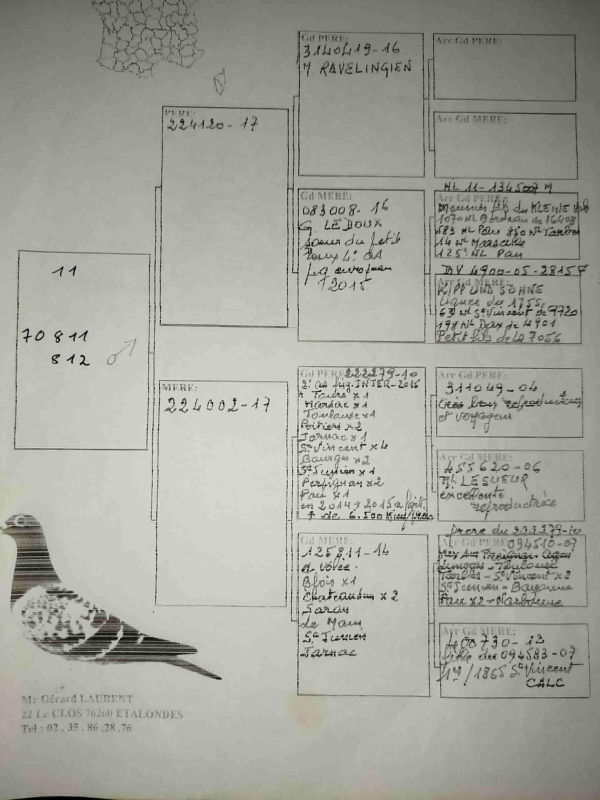 11
70811
812 ♂
PERE:
224120-17
MERE:
224002-17
Gd PERE:
3140419-16
M. RAVELINGIEN
Gd MERE:
083008-16
G. LEDOUX
soeur du petit
4e
européen
2015
Gd PERE
222279-10
2e as INTER-2015
Tours x1
Marsac x1
Toulouse x1
Poitiers x2
Jarnac x1
St Vincent x4
Bourges x2
St Junien x1
Perpignan x2
Pau x1
en 2014 + 2015 a fait
+ de 6.500
Gd MERE:
125811-14
a volée.
Blois x1
Chateaudun x2
Saran
Le Mans
St Junien
Jarnac
Arr Gd PERE:
Arr Gd MERE:
NL 11-1345007 M
Arr Gd PERE:
fils du KLEINE
1070 NL Bordeau de 16408
583 NL Pau 850 NL Tarbes
14 NL Marseille
125e NL Pau
DV 4900-05-28157
Arr Gd MERE:
RIPP UND SOHNE
Lignée du 1755,
63 NL St Vincent de 9720
198 NL Dax de 4901
Petit fils de la 7056
Arr Gd PERE:
311049-04
très bon reproducteur
et voyageur
Arr Gd MERE:
455620-06
Mr LESUEUR
excellente
reproductrice
frere du 222279-10
Arr Gd PERE:
094510-07
Limoges - Toulouse
Tarbes - St Vincent x2
St Junien - Bayonne
Pau x2 - Narbonne
Arr Gd MERE:
400730-13
fille du 094583-07
1er/1865 St Vincent
CALC
Mr Gérard LAURENT
22 Le CLOS 76260 ETALONDES
Tel : 02 . 35 . 86 .28 .76